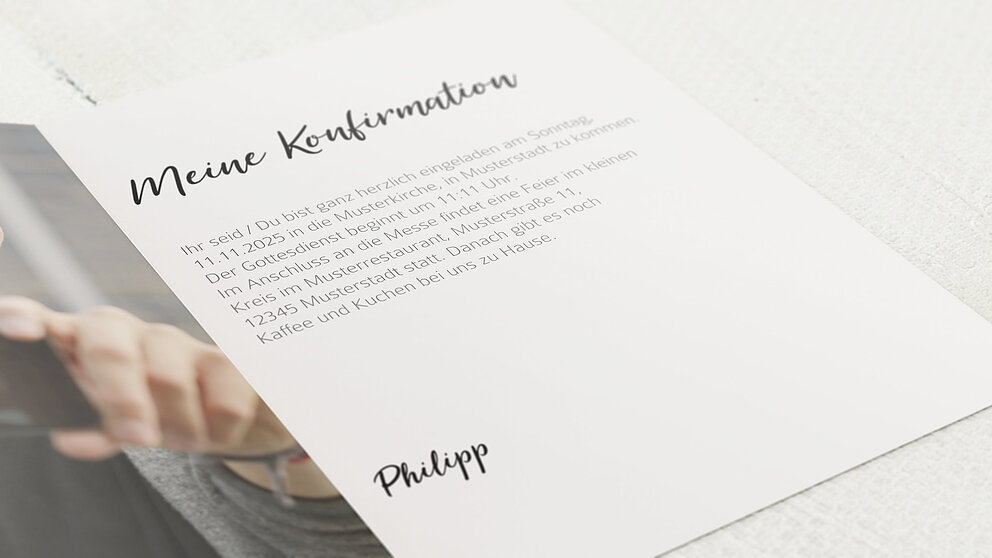 Meine Konfirmation
Ihr seid / Du bist ganz herzlich eingeladen am Sonntag,
11.11.2025 in die Musterkirche, in Musterstadt zu kommen.
Der Gottesdienst beginnt um 11:11 Uhr.
Im Anschluss an die Messe findet eine Feier im kleinen
Kreis im Musterrestaurant, Musterstraße 11,
12345 Musterstadt statt. Danach gibt es noch
Kaffee und Kuchen bei uns zu Hause.
Philipp